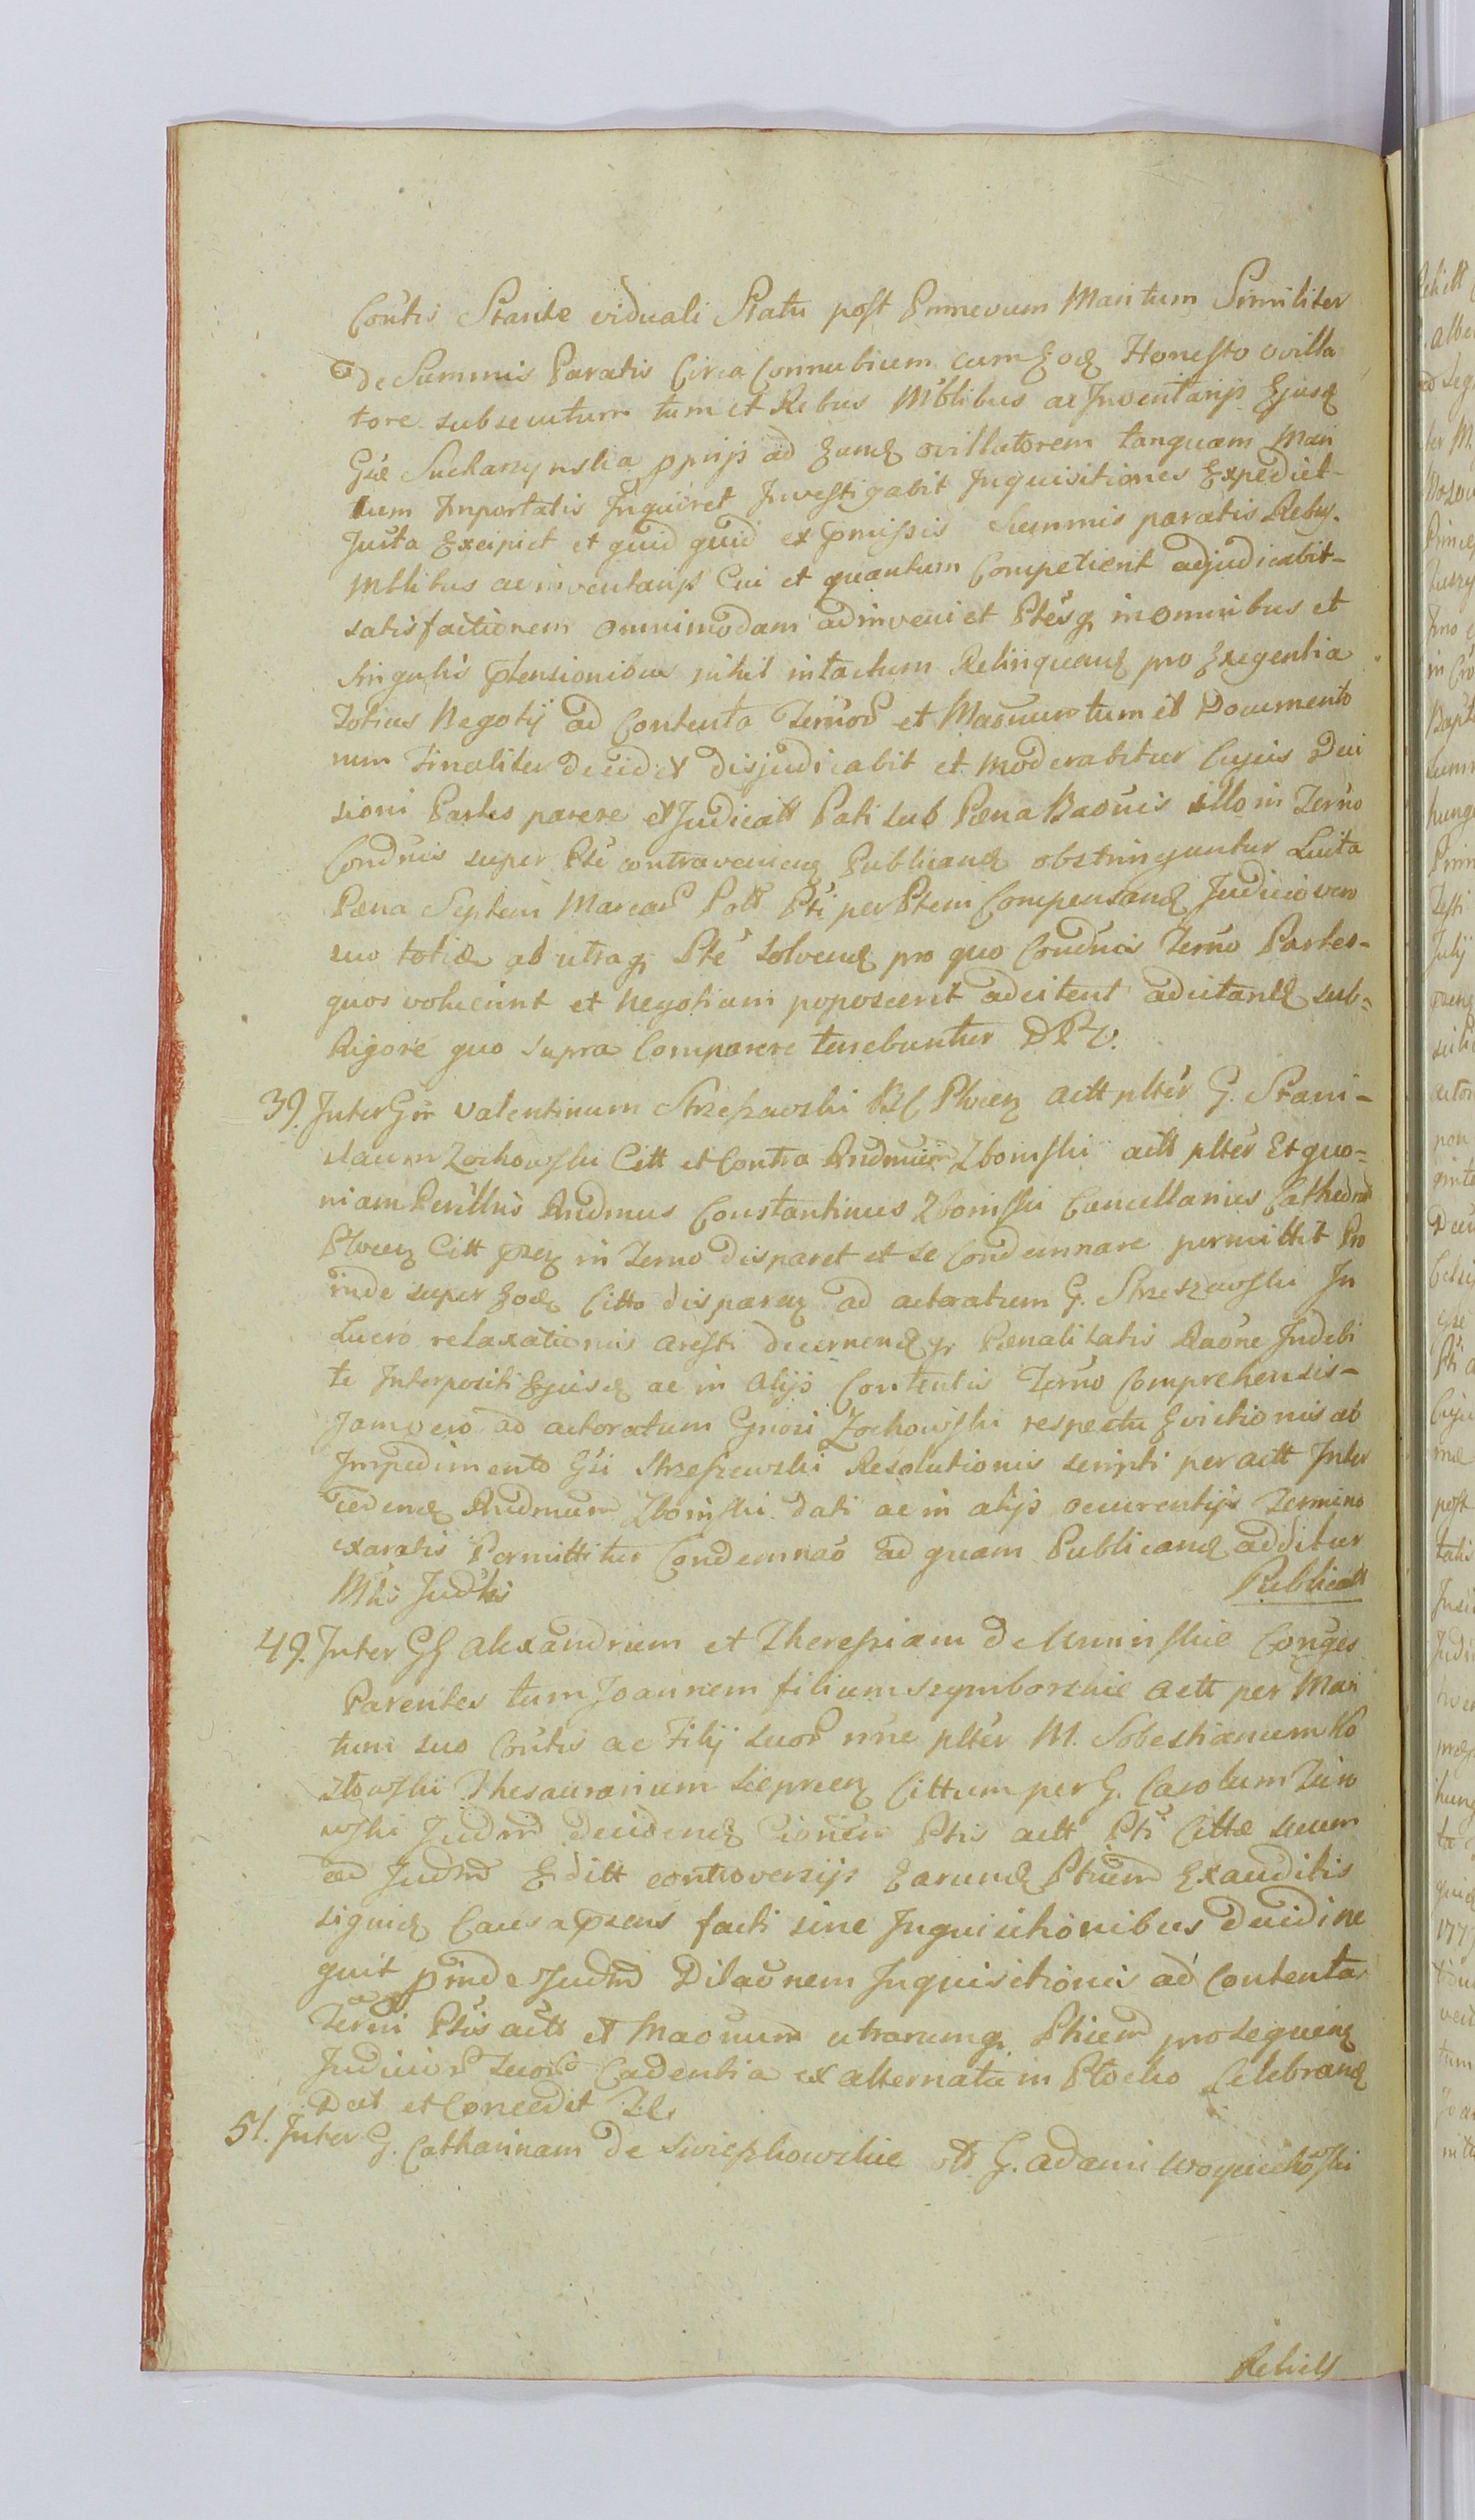 Contis Stante viduali Statu post Pmnevum Maritum Similiter
de Summis Paratis Circa Connubium cum Eodem Honesto ovilla
tore subsecutum tum et Rebus Mblibus ac Inventarijs Ejusq
Gsæ Sucharzynska pprijs ad Eunq ovillatorem tanquam Mari
tum Importatis Inquiret Investigabit Inquisitiones Expediet
Jurta Excipiet et quid quid ex pmissis Summis paratis Rebus
Mblibus ac inventarijs Cui et quantum Competient adjudicabit
satisfactionem omnimodam adinveniet Ptesq in omnibus et
singulis ptensionibus nihil intactum Relinquenq pro Exegentia
Totius Negotij ad Contenta Ternor et Maouum tum et Documento
rum Finaliter decidet disjudicabit et moderabitur Cujus Deci
sioni Partes parere et Judicatt Pati sub Pæna Baonis illo in Terno
Condnis super Pte contravenienq Publicanq obstringuntur Luita
Pæna Septem Marcar Poll Pti per Ptem Compensanq Judicio vero
suo totidem ab utraq Pte solvenq pro quo Condnis Terno Partes
quos voluerint et Negotium poposcerit adcitent adcitantq sub=
Rigore quo supra Comparere tenebuntur
39. Inter Gm Valentinum Strzeszewski Plocen actt plter G. Stani-
slaum Zochowski Citt et Contra Rndmum Zboinski actt plter Et quo=
niam Perillris Rndmus Constantinus Zboinski Cancellarius Cathedral
Plocen Citt pzen in Terno disparet et se Condemnare permittit Pro
inde super Eodq Citto disparen ad actoratum G. Strzeszewski In
Lucro relaxationis aresti decernenq Pænalitatis Raone Indebi
te Interpositi Ejusq ac in Alijs Contentis Terno Comprehensis-
Jam vero ad actoratum Gnosi Zochowski respectu Evictionis ab
Impedimento Gsi Strzeszewski Resolutionis scripti per actt Inter
cedenq Rndmum Zboinski dati ac in alijs occurentijs Termino
exaratis Permittitur Condemnao ad quam Publicanq additur
Mlis Judlis Publicatt
49. Inter GG Alexandrum et Theresiam de Kuninskie Conges
Parentes tum Joannem filium Szymborskie actt per Mari
tum suo Contis ac Filij suor nne plter M. Sobestianum Ko
ztowski Thesaurarium Sieprcen Cittum per G. Carolum Zuno
wski Judm decidenq Cionem Ptis actt Pti Cittæ secum
ad Judm Editt controversijs Earunq Ptium Exauditis
siquiq Causa pzens facti sine Inquisitionibus decidi ne
quit pinde Judm Dilaonem Inquisitionis ad Contenta
Terni Ptis actt et Maouum utrarumq Ptium prosequenq
Judicior Suor Cadentia ex alternata in Plocko Celebranq
Dat et Concedit
51. Inter G. Catharinam de Swieszkowskie olt G. Adami Woyciechoski
Relictt